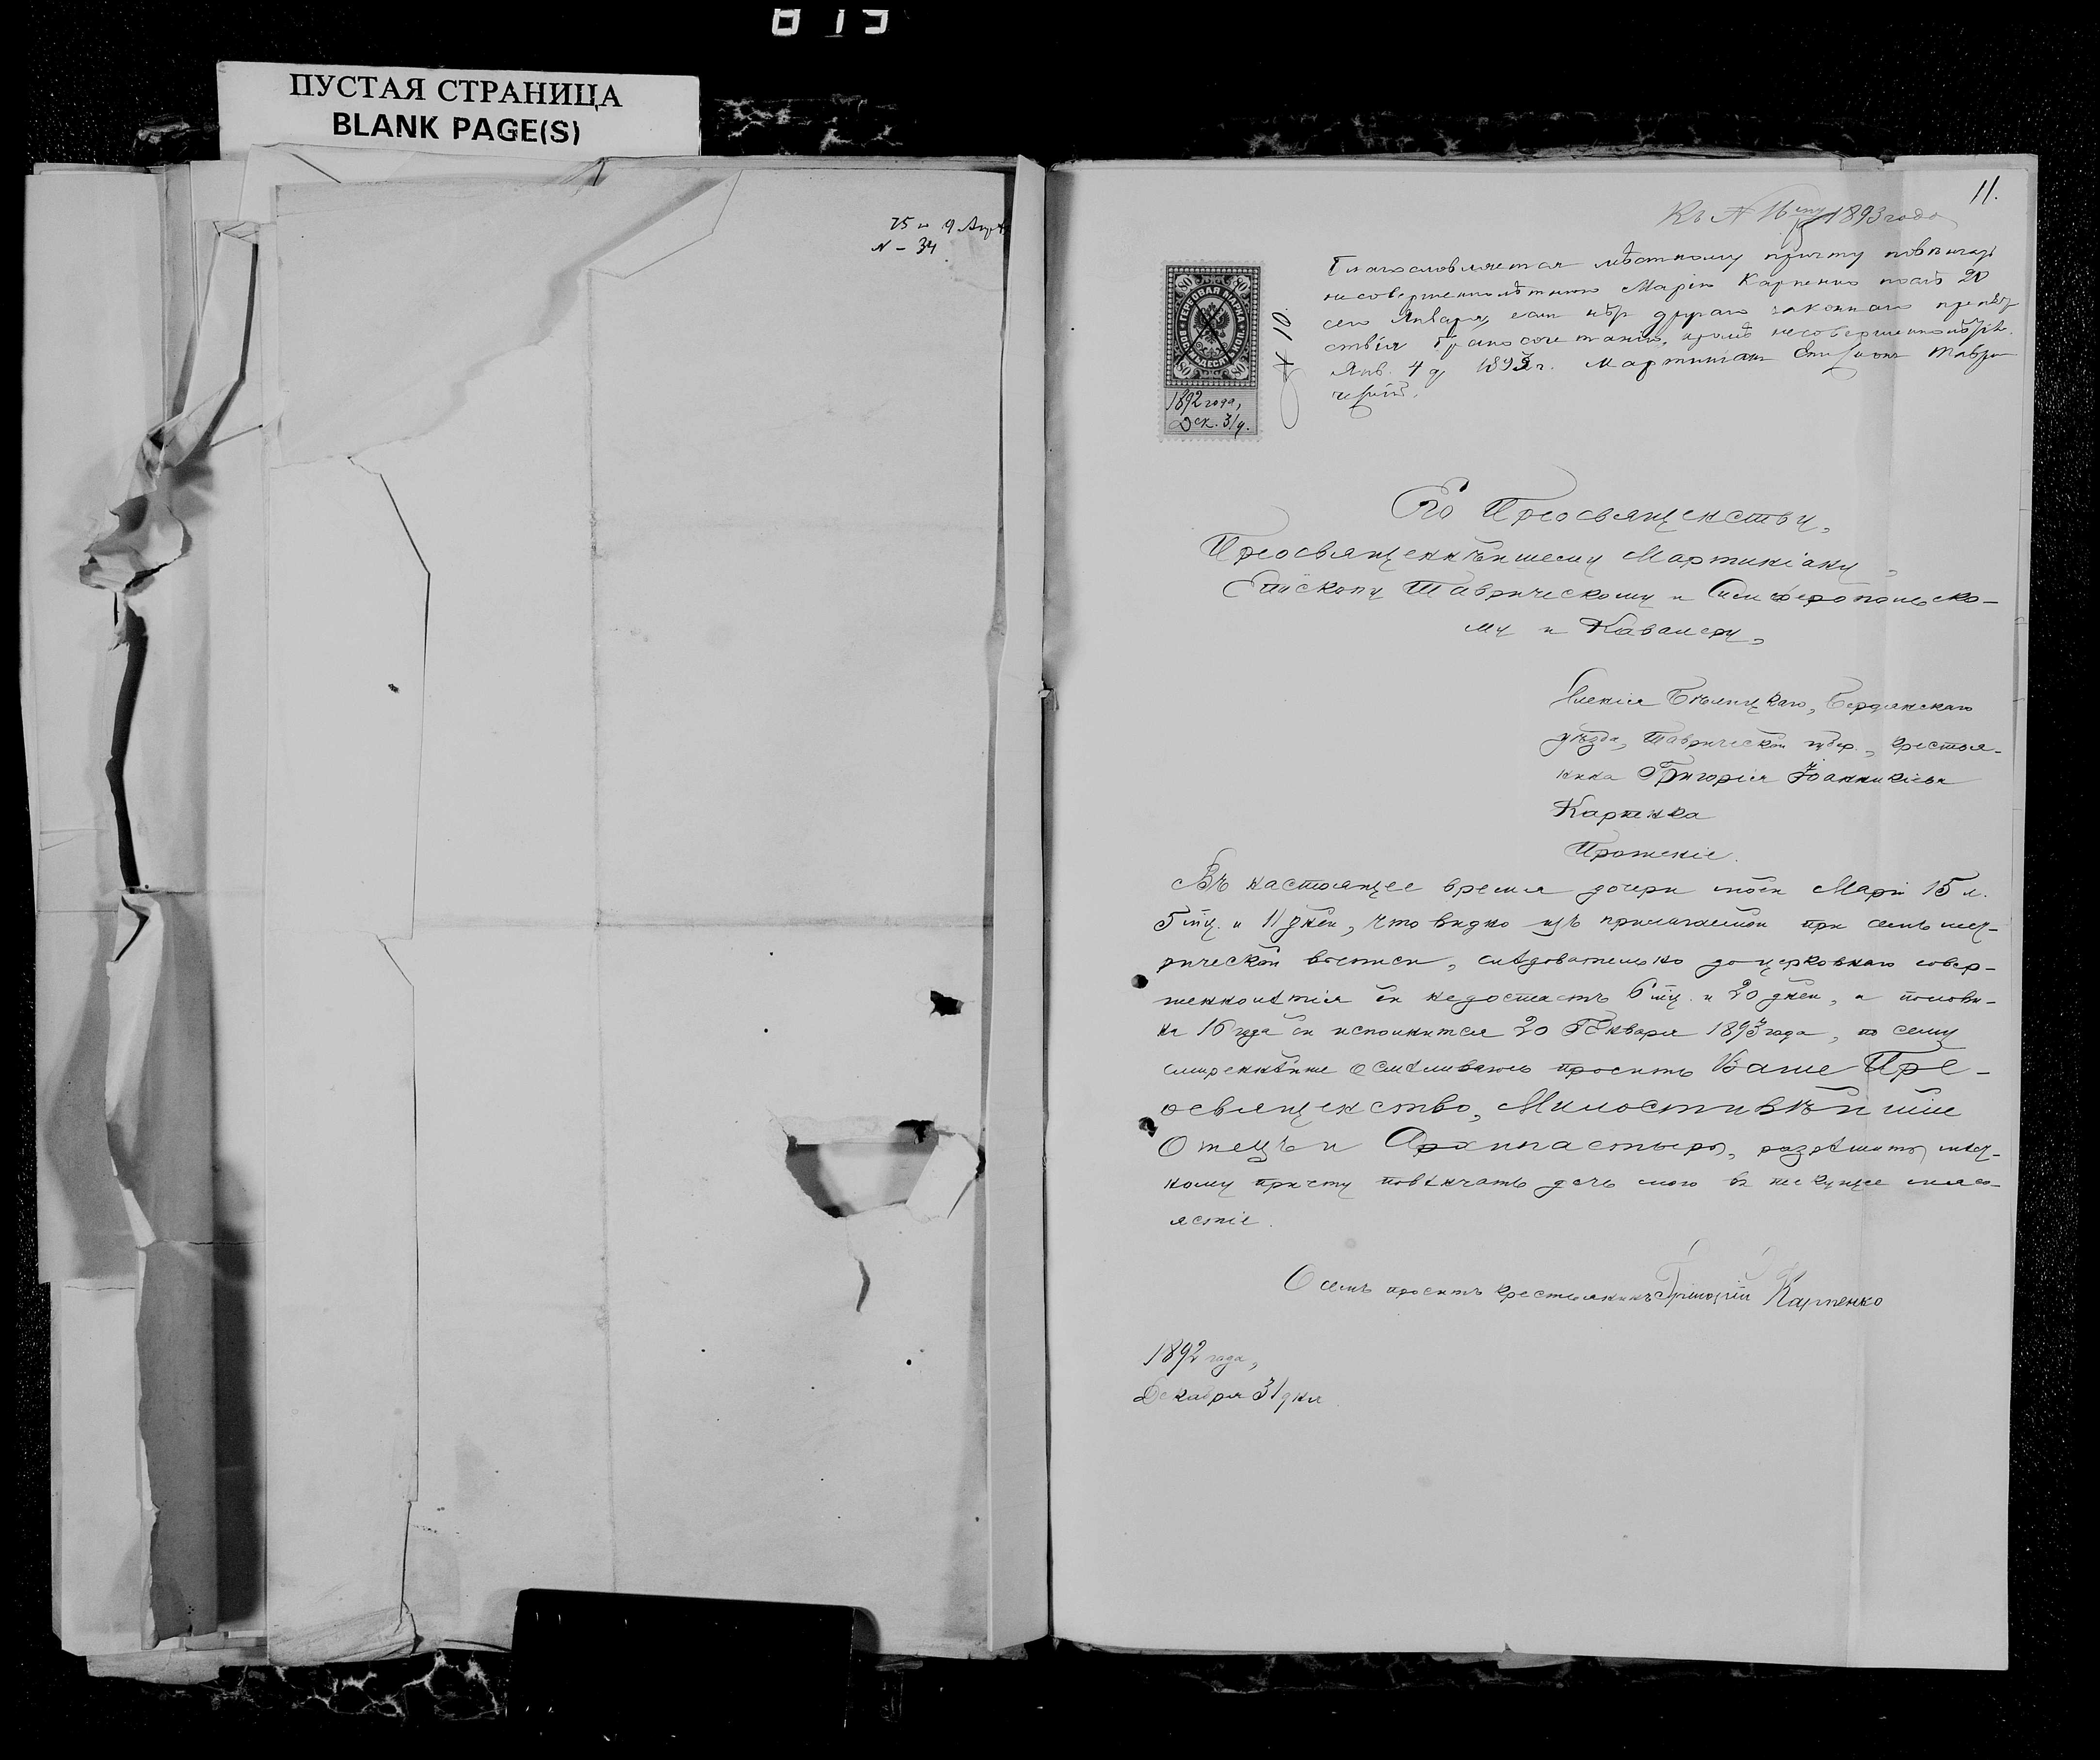 ПУСТАЯ СТРАНИЦА
BLANK PAGE(S)
N - 34
11.
Къ № 16 1893 года
Благословляется мѣстному причту повѣнчать
несовершеннолѣтнюю Марію Карпенко послѣ 20
сего Января, если нѣт другаго законнаго препят
ствія бракосочетанію, кромѣ несовершеннолѣтія.
Янв. 4 д. 1893 г. Мартиніан Епископ Таври
ческій.
80 80
ГЕРБОВАЯ МАРКА
80 80
1892 года,
Дек. 31 д.
№ 10
Его Преосвященству,
Преосвященнѣйшему Мартиніану,
Епископу Таврическому и Симферопольско-
му и Кавалеру,
Бѣлицкаго, Бердянскаго
уѣзда, Таврической губер., крестья-
нина Григорія Іоанникіева
Карпенка
Прошеніе.
Въ настоящее время дочери моей Маріи 15 л.
5 мц. и 11 дней, что видно изъ прилагаемой при семъ мет-
рической выписи, слѣдовательно до церковнаго совер-
шеннолѣтія ей недостаетъ 6 мц. и 20 дней, а полови-
на 16 года ей исполнится 20 Января 1893 года, по сему
смиреннѣйше осмѣливаюсь просить Ваше Пре-
освященство, Милостивѣйшій
Отецъ и Архипастырь, разрѣшить мѣст-
ному причту повѣнчать дочь мою въ текущее мясо-
ястіе.
О семъ проситъ крестьянинъ Григорій Карпенко
1892 года,
Декабря 31 дня